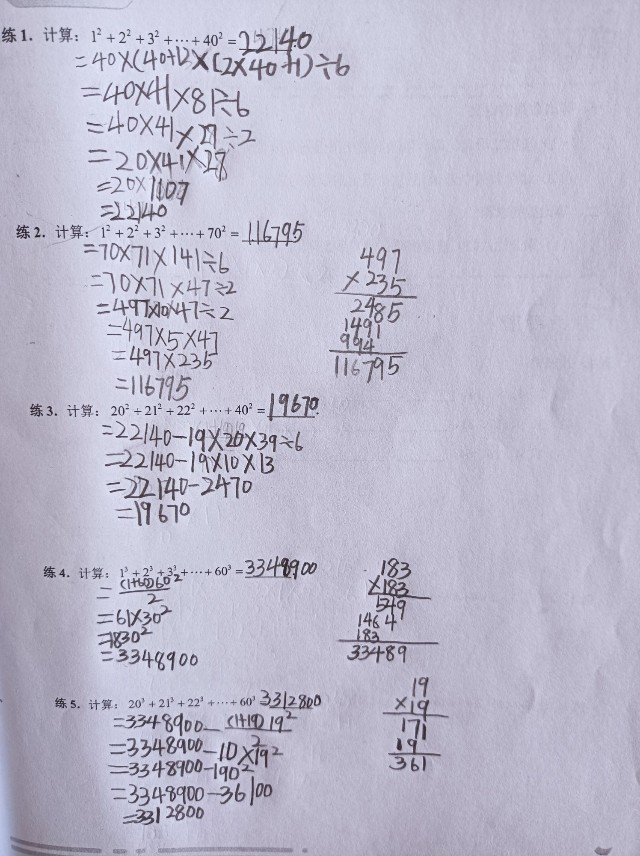 练1. 计算: 1² + 2² + 3² + ⋯ + 40² = 22140
= 40×(40+1)×(2×40+1)÷6
= 40×41×81÷6
= 40×41×27÷2
= 20×41×27
= 20×1107
= 22140
练2. 计算: 1² + 2² + 3² + ⋯ + 70² = 116795
= 70×71×141÷6
= 70×71×47÷2
= 497×10×47÷2
= 497×5×47
= 497×235
= 116795
497
×235
2485
1491
994
116795
练3. 计算: 20² + 21² + 22² + ⋯ + 40² = 19670
= 22140-19×20×39÷6
= 22140-19×10×13
= 22140-2470
= 19670
练4. 计算: 1³ + 2³ + 3³ + ⋯ + 60³ = 3348900
= (1+60)60²
2
= 61×30²
= 1830²
= 3348900
183
×183
549
1464
183
33489
练5. 计算: 20³ + 21³ + 22³ + ⋯ + 60³ 3312800
= 3348900-(1+19)19²
2
= 3348900-10×19²
= 3348900-190²
= 3348900-36100
= 3312800
19
×19
171
19
361